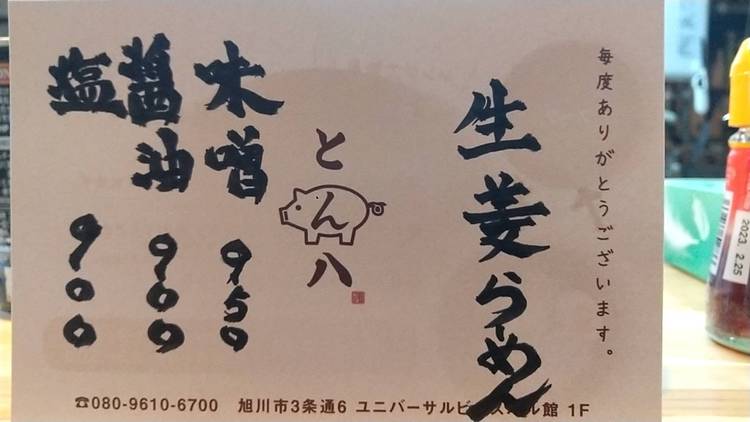 毎度ありがとうございます。
生姜らーめん
とん八
味噌 950
醤油 900
塩 900
☎080-9610-6700 旭川市3条通6 ユニバーサルビ 館 1F
2023. 2.25